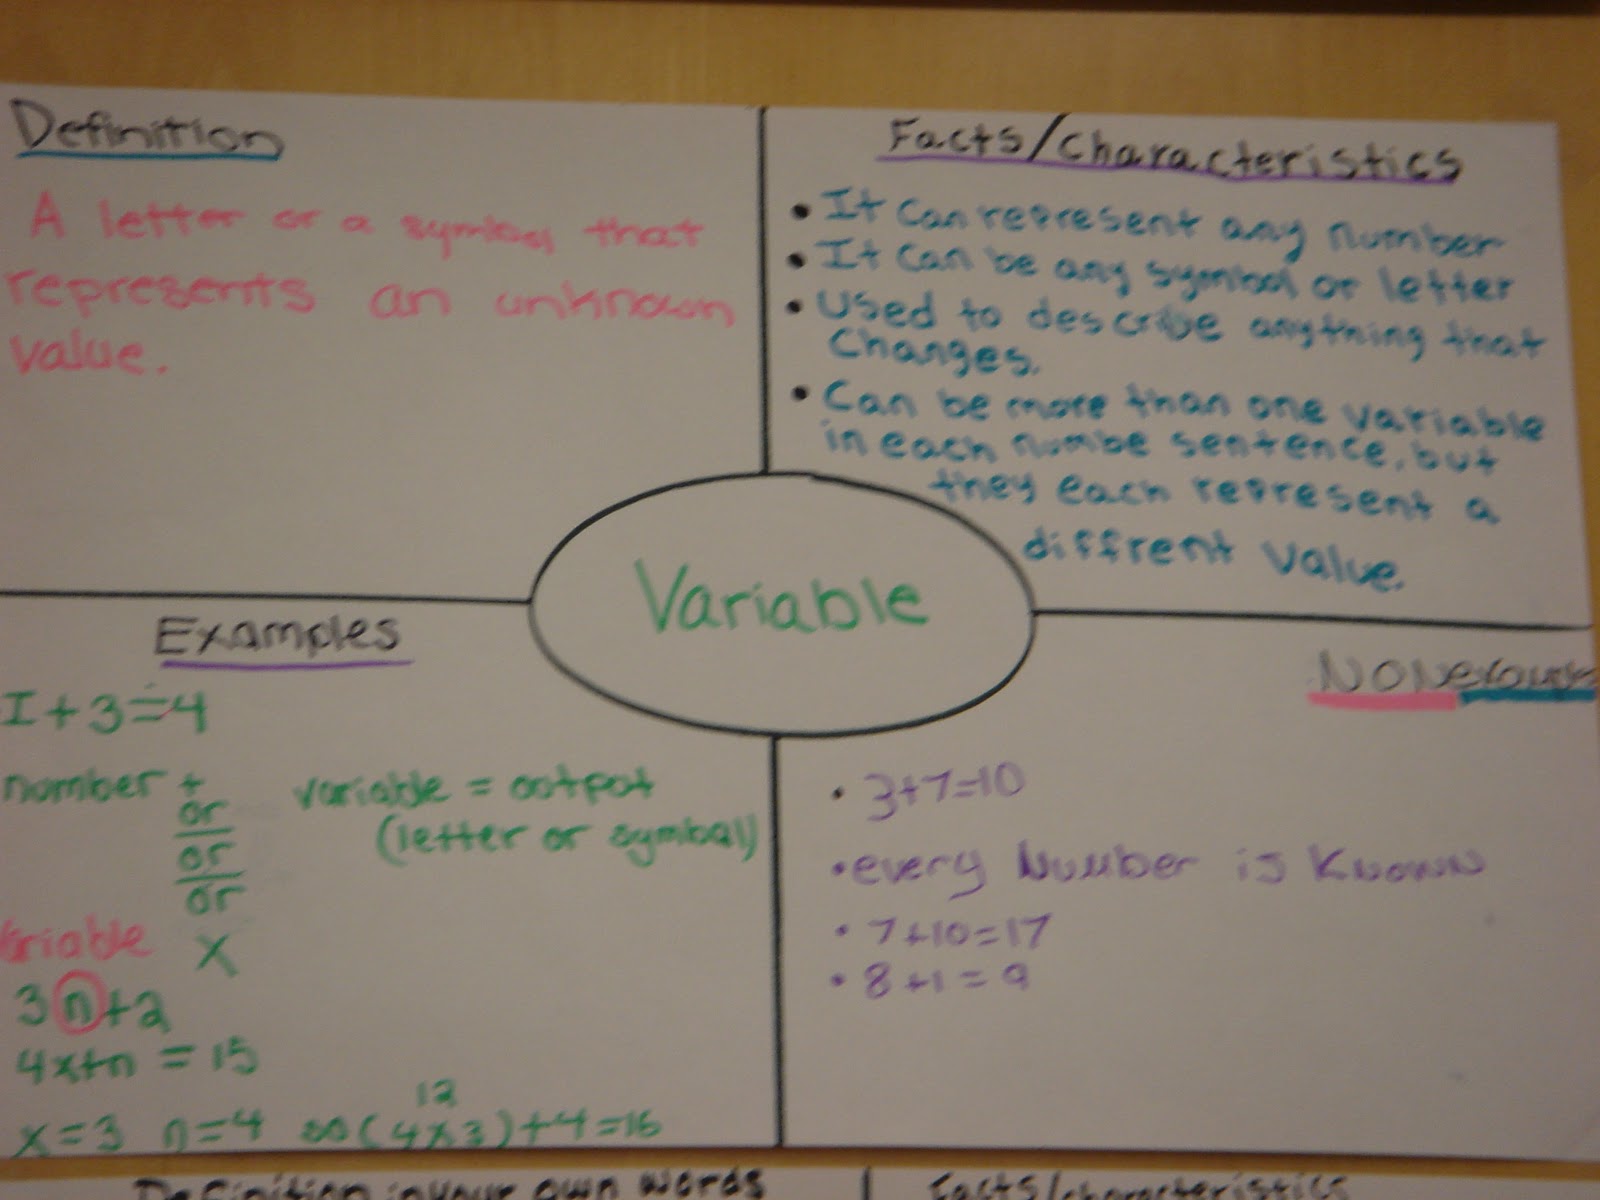 Definition
A letter or a symbol that
represents an unknown
value.
Facts/Characteristics
• It can represent any number
• It can be any symbol or letter
• Used to describe anything that
changes.
• Can be more than one variable
in each numbe sentence, but
they each represent a
diffrent value.
Variable
Examples
I + 3 = 4
number + variable = output
or (letter or symbol)
or
or
x
variable
3n+2
4x+n = 15
12
x=3 n=4 so (4x3)+4=16
• 3+7=10
• every Number is Known
• 7+10=17
• 8+1=9
Definition in your own words
Facts/characteristics